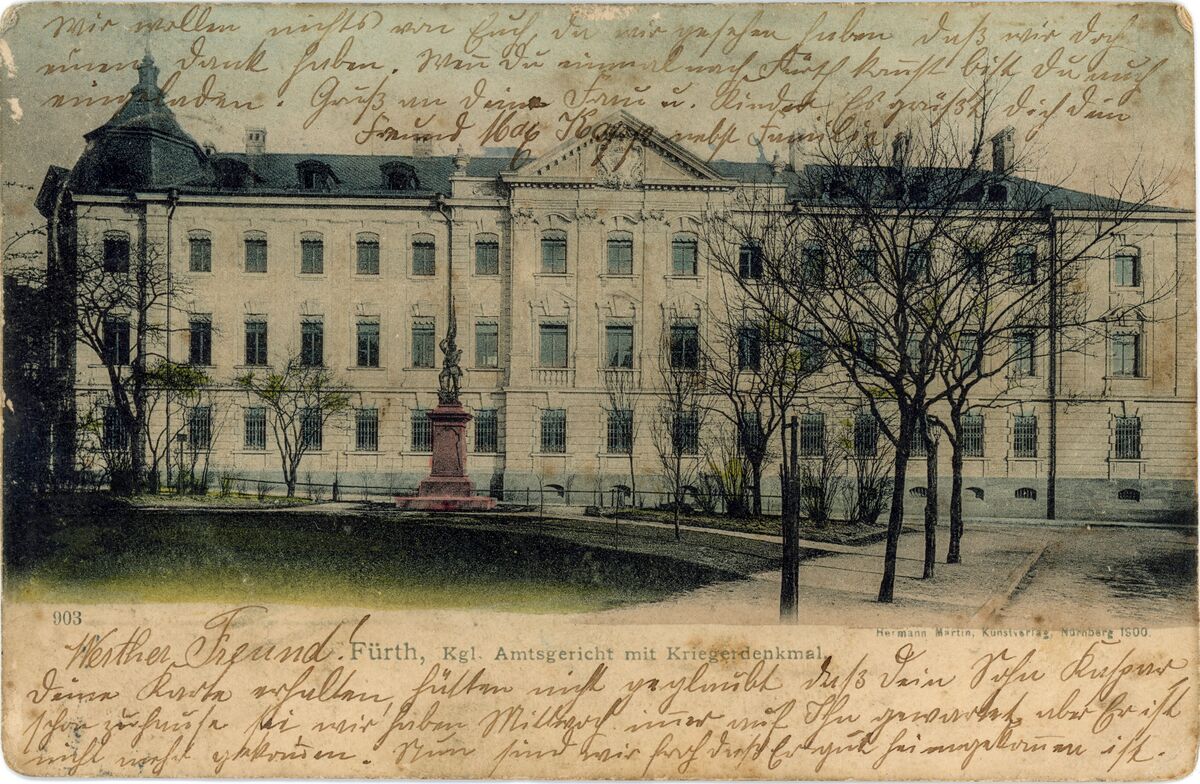 Wir wollen nichts von Euch, da wir gesehen haben daß wir doch
einen Dank haben. Wen Du einmal nach Fürth komst bist Du auch
eingeladen. Gruß an deine Frau u. Kinder Es grüßt Dich dein
Freund Max nebst Familie
903
Werther Freund!
Fürth, Kgl. Amtsgericht mit Kriegerdenkmal.
Hermann Martin, Kunstverlag, Nürnberg 1900.
Deine Karte erhalten, hätten nicht geglaubt daß dein Sohn Kaspar
schon zuhause sei wir haben Mittwoch imer auf Ihn gewartet, aber Er ist
nicht mehr gekom̄en. Nun sind wir froh daß Er gut heimgekom̄en ist.